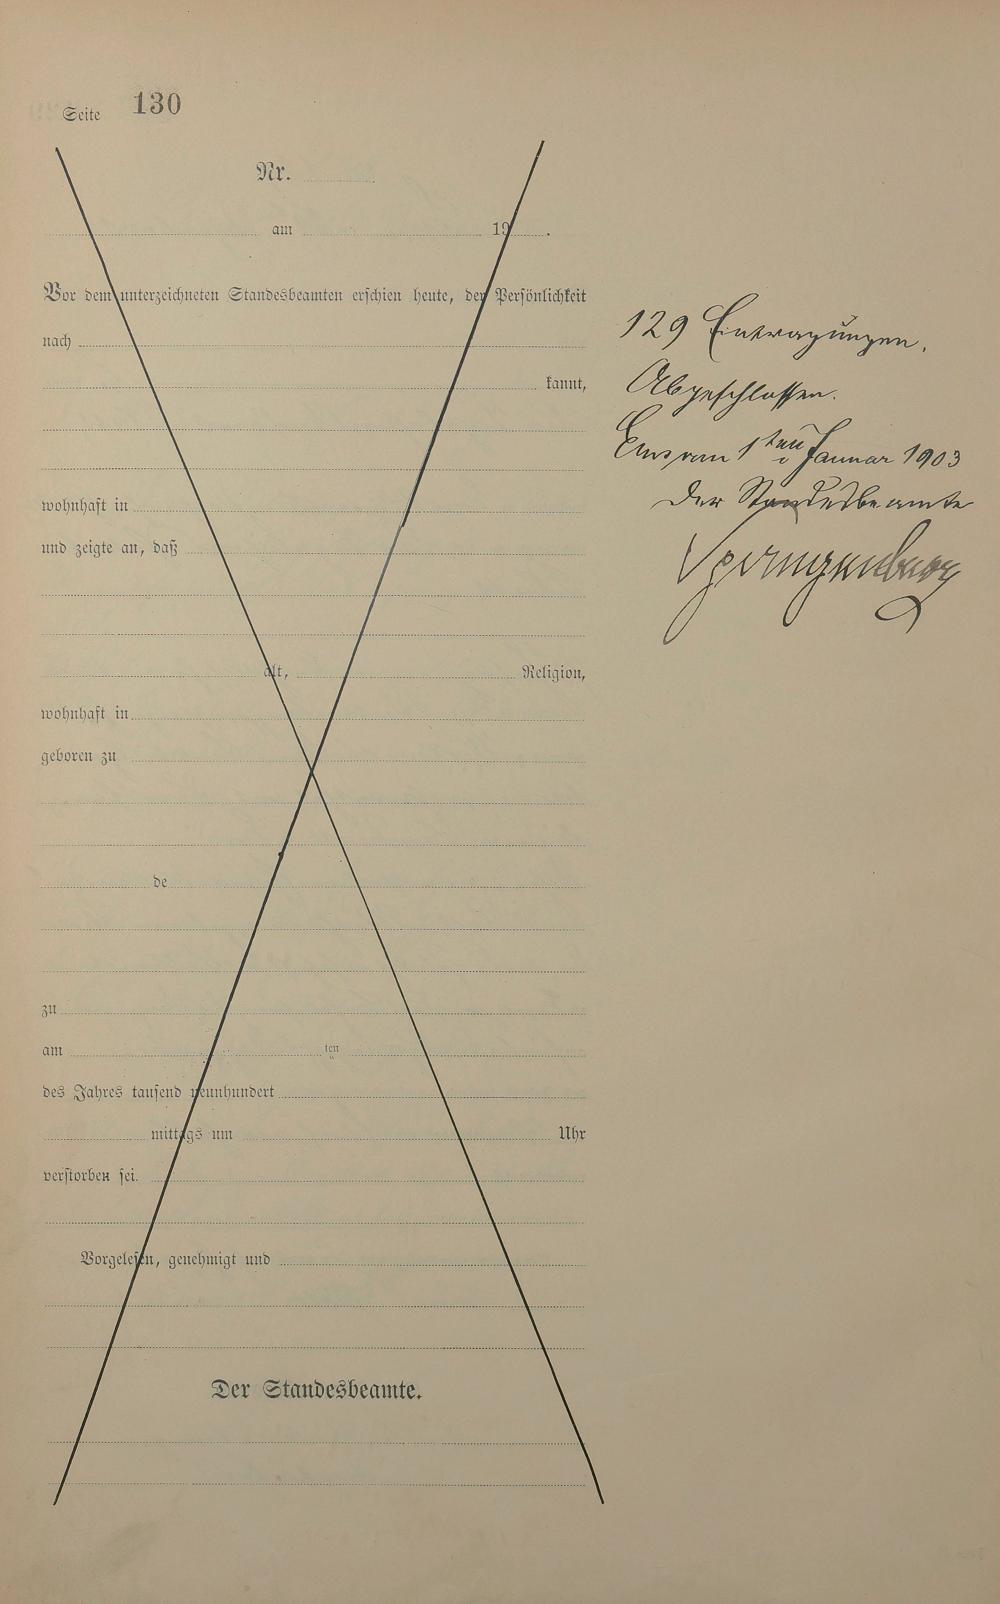 Seite 130
Nr.
am 19 .
Vor dem unterzeichneten Standesbeamten erschien heute, der Persönlichkeit
nach
kannt,
wohnhaft in
und zeigte an, daß
alt, Religion,
wohnhaft in
geboren zu
de
zu
am ten
des Jahres tausend neunhundert
mittags um Uhr
verstorben sei.
Vorgelesen, genehmigt und
Der Standesbeamte.
129 Eintragungen.
Abgeschlossen.
1ten Januar 1903
Der Standesbeamte